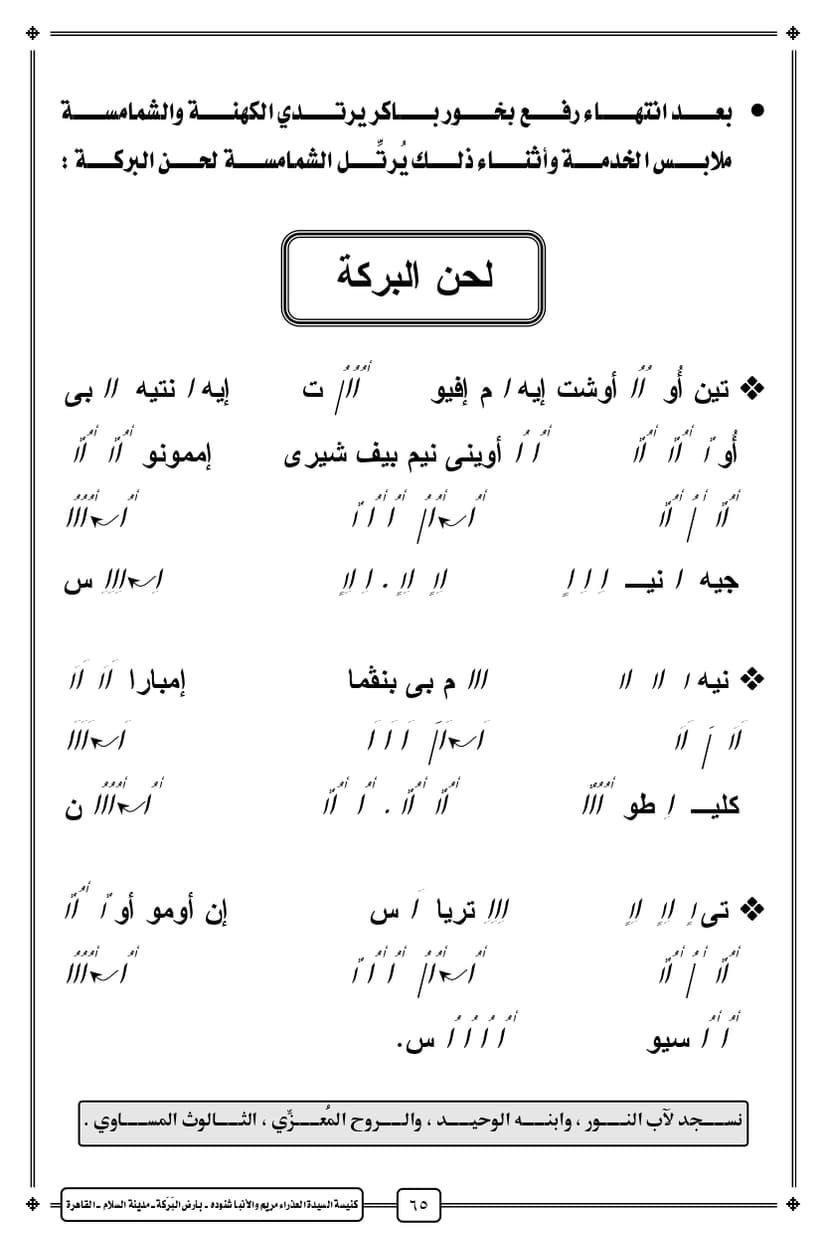 • بعد انتهاء رفع بخور باكر يرتدي الكهنة والشمامسة
ملابس الخدمة وأثناء ذلك يُرتِّل الشمامسة لحن البركة :
لحن البركة
❖ تين أُو أوشت إيه ا م إفيو ت إيه ا نتيه اا بى
أُو أوينى نيم بيف شيرى إممونو
جيه ا نيـ س
❖ نيه ا اا اا ااا م بى بنڤما إمبارا
كليـ طو ن
❖ تى تريا س إن أومو أو
سيو س.
نسجد لآب النور ، وابنه الوحيد ، والروح المُعزِّي ، الثالوث المساوي .
كنيسة السيدة العذراء مريم والأنبا شنوده - بأرض البَرَكة - مدينة السلام - القاهرة
٦٥